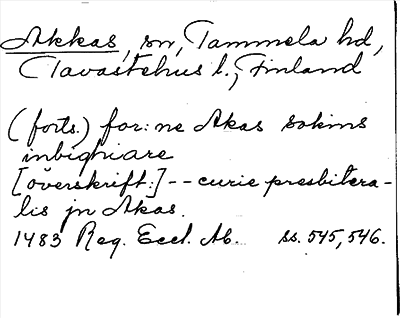 Akkas, sn, Tammela hd,
Tavastehus l., Finland
(forts.) for: ne Akas sokins
inbighiare
[överskrift:] -- curie presbitera-
lis jn Akas.
1483 Reg. Eccl. Ab. ss. 545, 546.